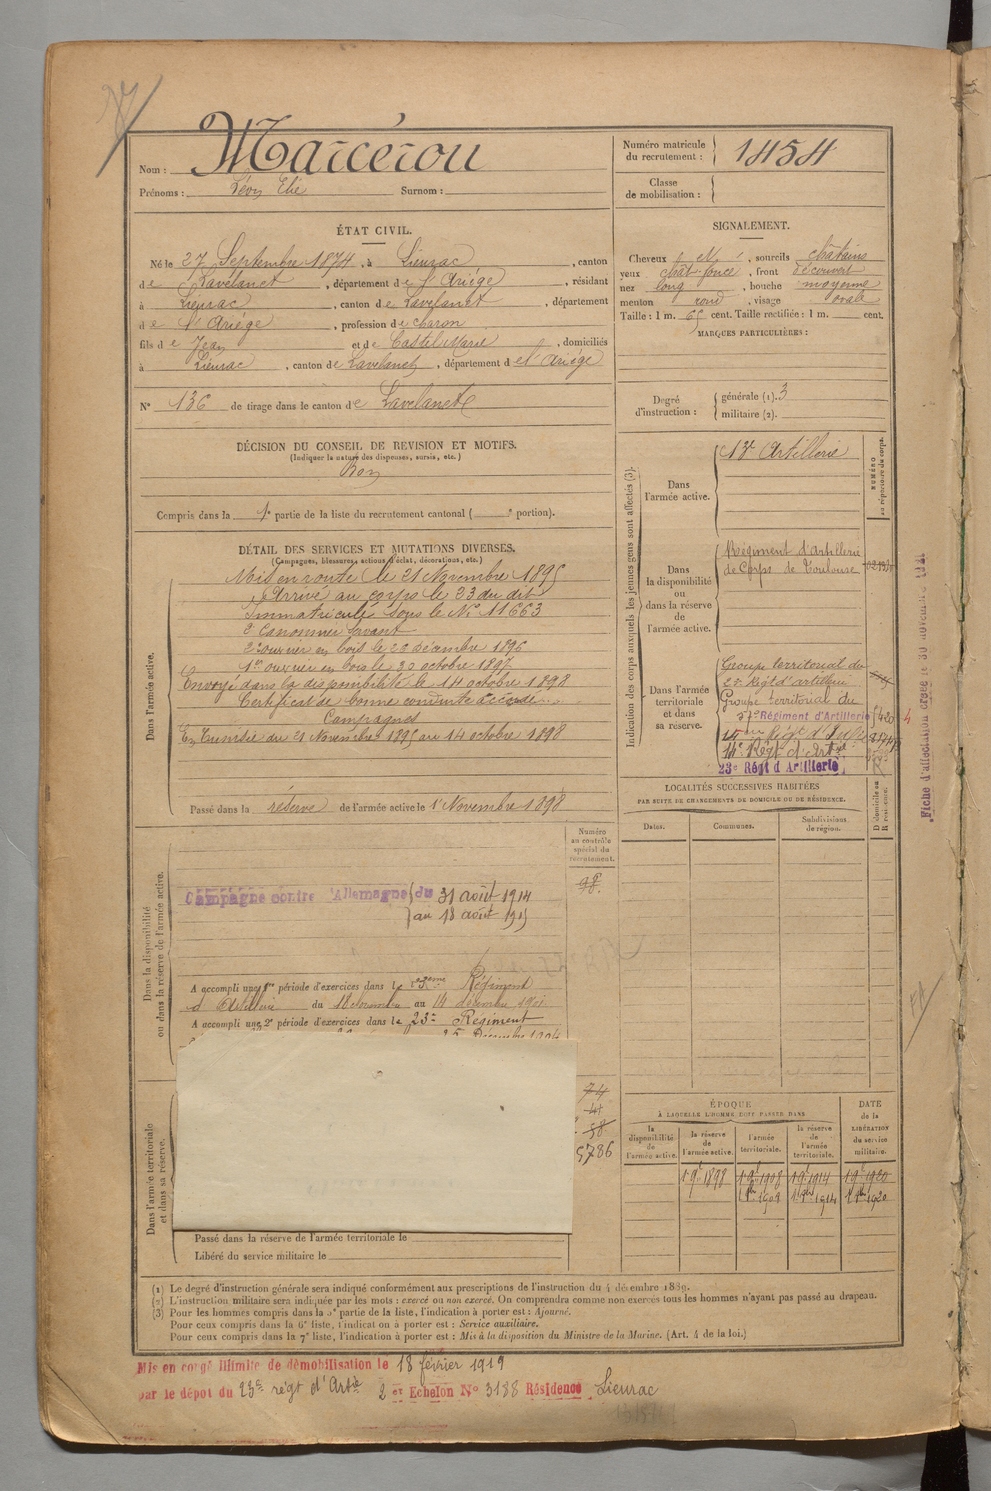 Nom : Marcerou
Prénoms : Léon Elie Surnom :
Numéro matricule du recrutement : 1454
Classe de mobilisation :
ÉTAT CIVIL.
Né le 27 Septembre 1874, à Lieurac, canton
de Lavelanet, département de l'Ariège, résidant
à Lieurac, canton de Lavelanet, département
de l'Ariège, profession de charon
fils de Jean et de Castel Marie, domiciliés
à Lieurac, canton de Lavelanet, département de l'Ariège
N° 136 de tirage dans le canton de Lavelanet
SIGNALEMENT.
Cheveux sourcils châtains
yeux chât foncé, front découvert
nez long, bouche moyenne
menton rond, visage ovale
Taille : 1 m. 65 cent. Taille rectifiée : 1 m. cent.
MARQUES PARTICULIÈRES :
Degré d'instruction : générale (1). 3
militaire (2).
DÉCISION DU CONSEIL DE REVISION ET MOTIFS.
(Indiquer la nature des dispenses, sursis, etc.)
Bon
Compris dans la 1e partie de la liste du recrutement cantonal ( e portion).
DÉTAIL DES SERVICES ET MUTATIONS DIVERSES.
(Campagnes, blessures, actions d'éclat, décorations, etc.)
Dans l'armée active.
Mis en route le 21 Novembre 1895
Arrivé au corps le 23 du dit
Immatriculé sous le N° 11663
2e Canonnier servant
2e ouvrier en bois le 22 décembre 1896
1er ouvrier en bois le 30 octobre 1897
Envoyé dans la disponibilité le 14 octobre 1898
Certificat de bonne conduite accordé
Campagnes
En Tunisie du 21 Novembre 1895 au 14 octobre 1898
Passé dans la réserve de l'armée active le 1er Novembre 1898
Indication des corps auxquels les jeunes gens sont affectés (3).
NUMÉRO au répertoire du corps.
Dans l'armée active.
13e Artillerie
Dans la disponibilité ou dans la réserve de l'armée active.
Régiment d'Artillerie
de Corps de Toulouse
Dans l'armée territoriale et dans sa réserve.
Groupe territorial du
2e Régt d'artillerie
Groupe territorial du
57e Régiment d'Artillerie 1420
14e Régt d'Art
23e Régt d'Artillerie
Fiche d'affectation créée le 30 novembre 1921
LOCALITÉS SUCCESSIVES HABITÉES
PAR SUITE DE CHANGEMENTS DE DOMICILE OU DE RÉSIDENCE.
Dates. Communes. Subdivisions de région. D domicile ou R résidence.
Dans la disponibilité ou dans la réserve de l'armée active.
Numéro au contrôle spécial du recrutement.
98.
Campagne contre l'Allemagne du 31 août 1914
au 18 août 1915
A accompli une 1re période d'exercices dans le 23eme Régiment
d'Artillerie du au 14 décembre
A accompli une 2e période d'exercices dans le 23e Régiment
25 Décembre 1904
Dans l'armée territoriale et dans sa réserve.
74
41
58
5786
Passé dans la réserve de l'armée territoriale le
Libéré du service militaire le
ÉPOQUE
À LAQUELLE L'HOMME DOIT PASSER DANS
la disponibilité de l'armée active. la réserve de l'armée active. l'armée territoriale. la réserve de l'armée territoriale.
DATE de la LIBÉRATION du service militaire.
1 9e 1898 1 9e 1908 1 9e 1914 1 9e 1920
1908 1914 1920
(1) Le degré d'instruction générale sera indiqué conformément aux prescriptions de l'instruction du 4 décembre 1889.
(2) L'instruction militaire sera indiquée par les mots : exercé ou non exercé. On comprendra comme non exercés tous les hommes n'ayant pas passé au drapeau.
(3) Pour les hommes compris dans la 5e partie de la liste, l'indication à porter est : Ajourné.
Pour ceux compris dans la 6e liste, l'indication à porter est : Service auxiliaire.
Pour ceux compris dans la 7e liste, l'indication à porter est : Mis à la disposition du Ministre de la Marine. (Art. 4 de la loi.)
Mis en congé illimité de démobilisation le 18 février 1919
par le dépôt du 23e régt d'Artie 2 er Echelon N° 3188 Résidence Lieurac